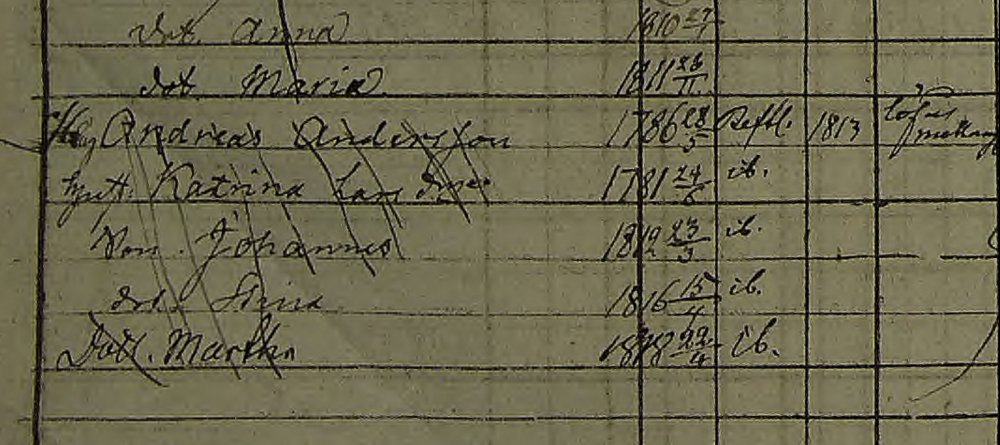 dot. Anna 1810 27/7
dot. Maria 1811 26/11
Andreas Andersson 1786 28/5 Reftl. 1813
hust. Katrina Lars dotter 1781 24/6 ib.
Son. Johannes 1812 23/3 ib.
dot. Stina 1816 15/4 ib.
Dott. Martha 1818 22/4 ib.